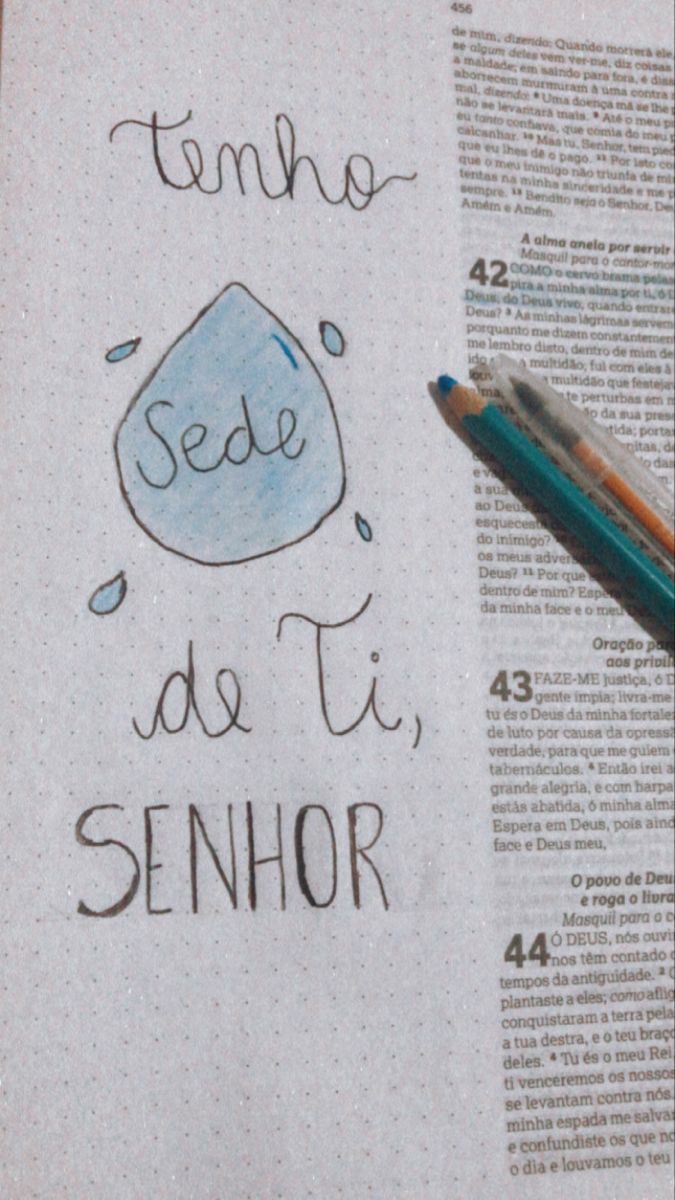 tenho
Sede
de Ti,
SENHOR
456
de mim, dizendo: Quando morrerá ele
se algum deles vem ver-me, diz coisas
a maldade; em saindo para fora, é diss
aborrecem murmuram à uma contra
mal, dizendo: 8 Uma doença má se lhe
não se levantará mais. 9 Até o meu p
eu tanto confiava, que comia do meu
calcanhar. 10 Mas tu, Senhor, tem pied
que eu lhes dê o pago. 11 Por isto co
que o meu inimigo não triunfa de mi
tentas na minha sinceridade e me p
sempre. 13 Bendito seja o Senhor, De
Amém e Amém.
A alma anela por servir
Masquil para o cantor-mor
42 COMO o cervo brama pelas
pira a minha alma por ti, ó
Deus, do Deus vivo; quando entrar
Deus? 3 As minhas lágrimas servem
porquanto me dizem constantemen
me lembro disto, dentro de mim de
multidão; fui com eles à
multidão que festejav
te perturbas em m
da sua pres
porta
das
a sua
ao Deus
esqueceste
do inimigo?
os meus advers
Deus? 11 Por que
dentro de mim? Espera
da minha face e o meu
Oração par
aos privil
43 FAZE-ME justiça, ó D
gente ímpia; livra-me
tu és o Deus da minha fortale
de luto por causa da opress
verdade, para que me guiem
tabernáculos. 4 Então irei a
grande alegria, e com harpa
estás abatida, ó minha alma
Espera em Deus, pois aind
face e Deus meu,
O povo de Deu
e roga o livra
Masquil para o c
44 Ó DEUS, nós ouvi
nos têm contado
tempos da antiguidade. 2
plantaste a eles; como aflig
conquistaram a terra pela
a tua destra, e o teu braço
deles. 4 Tu és o meu Rei
ti venceremos os nossos
se levantam contra nós.
minha espada me salvar
e confundiste os que no
o dia e louvamos o teu